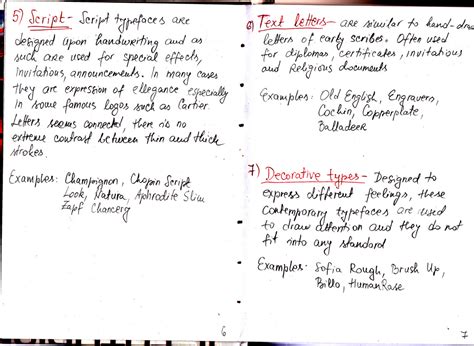 5) Script - Script typefaces are
designed upon handwriting and as
such are used for special effects,
Invitations, announcements. In many cases
they are expression of ellegance especially
in some famous logos such as Cartier.
Letters seems connected, there is no
extreme contrast between thin and thick
strokes.
Examples: Champignon, Chopin Script
Look, Natura, Aphrodite Slim
Zapf Chancery
6
6) Text letters - are similar to hand-draw
letters of early scribes. Often used
for diplomas, certificates, invitations
and Religious documents
Examples: Old English, Engravers,
Cochin, Copperplate,
Balladeer
7) Decorative types - Designed to
express different feelings, these
contemporary typefaces are used
to draw attention and they do not
fit into any standard
Examples: Sofia Rough, Brush Up,
Billo, HumanRase
7